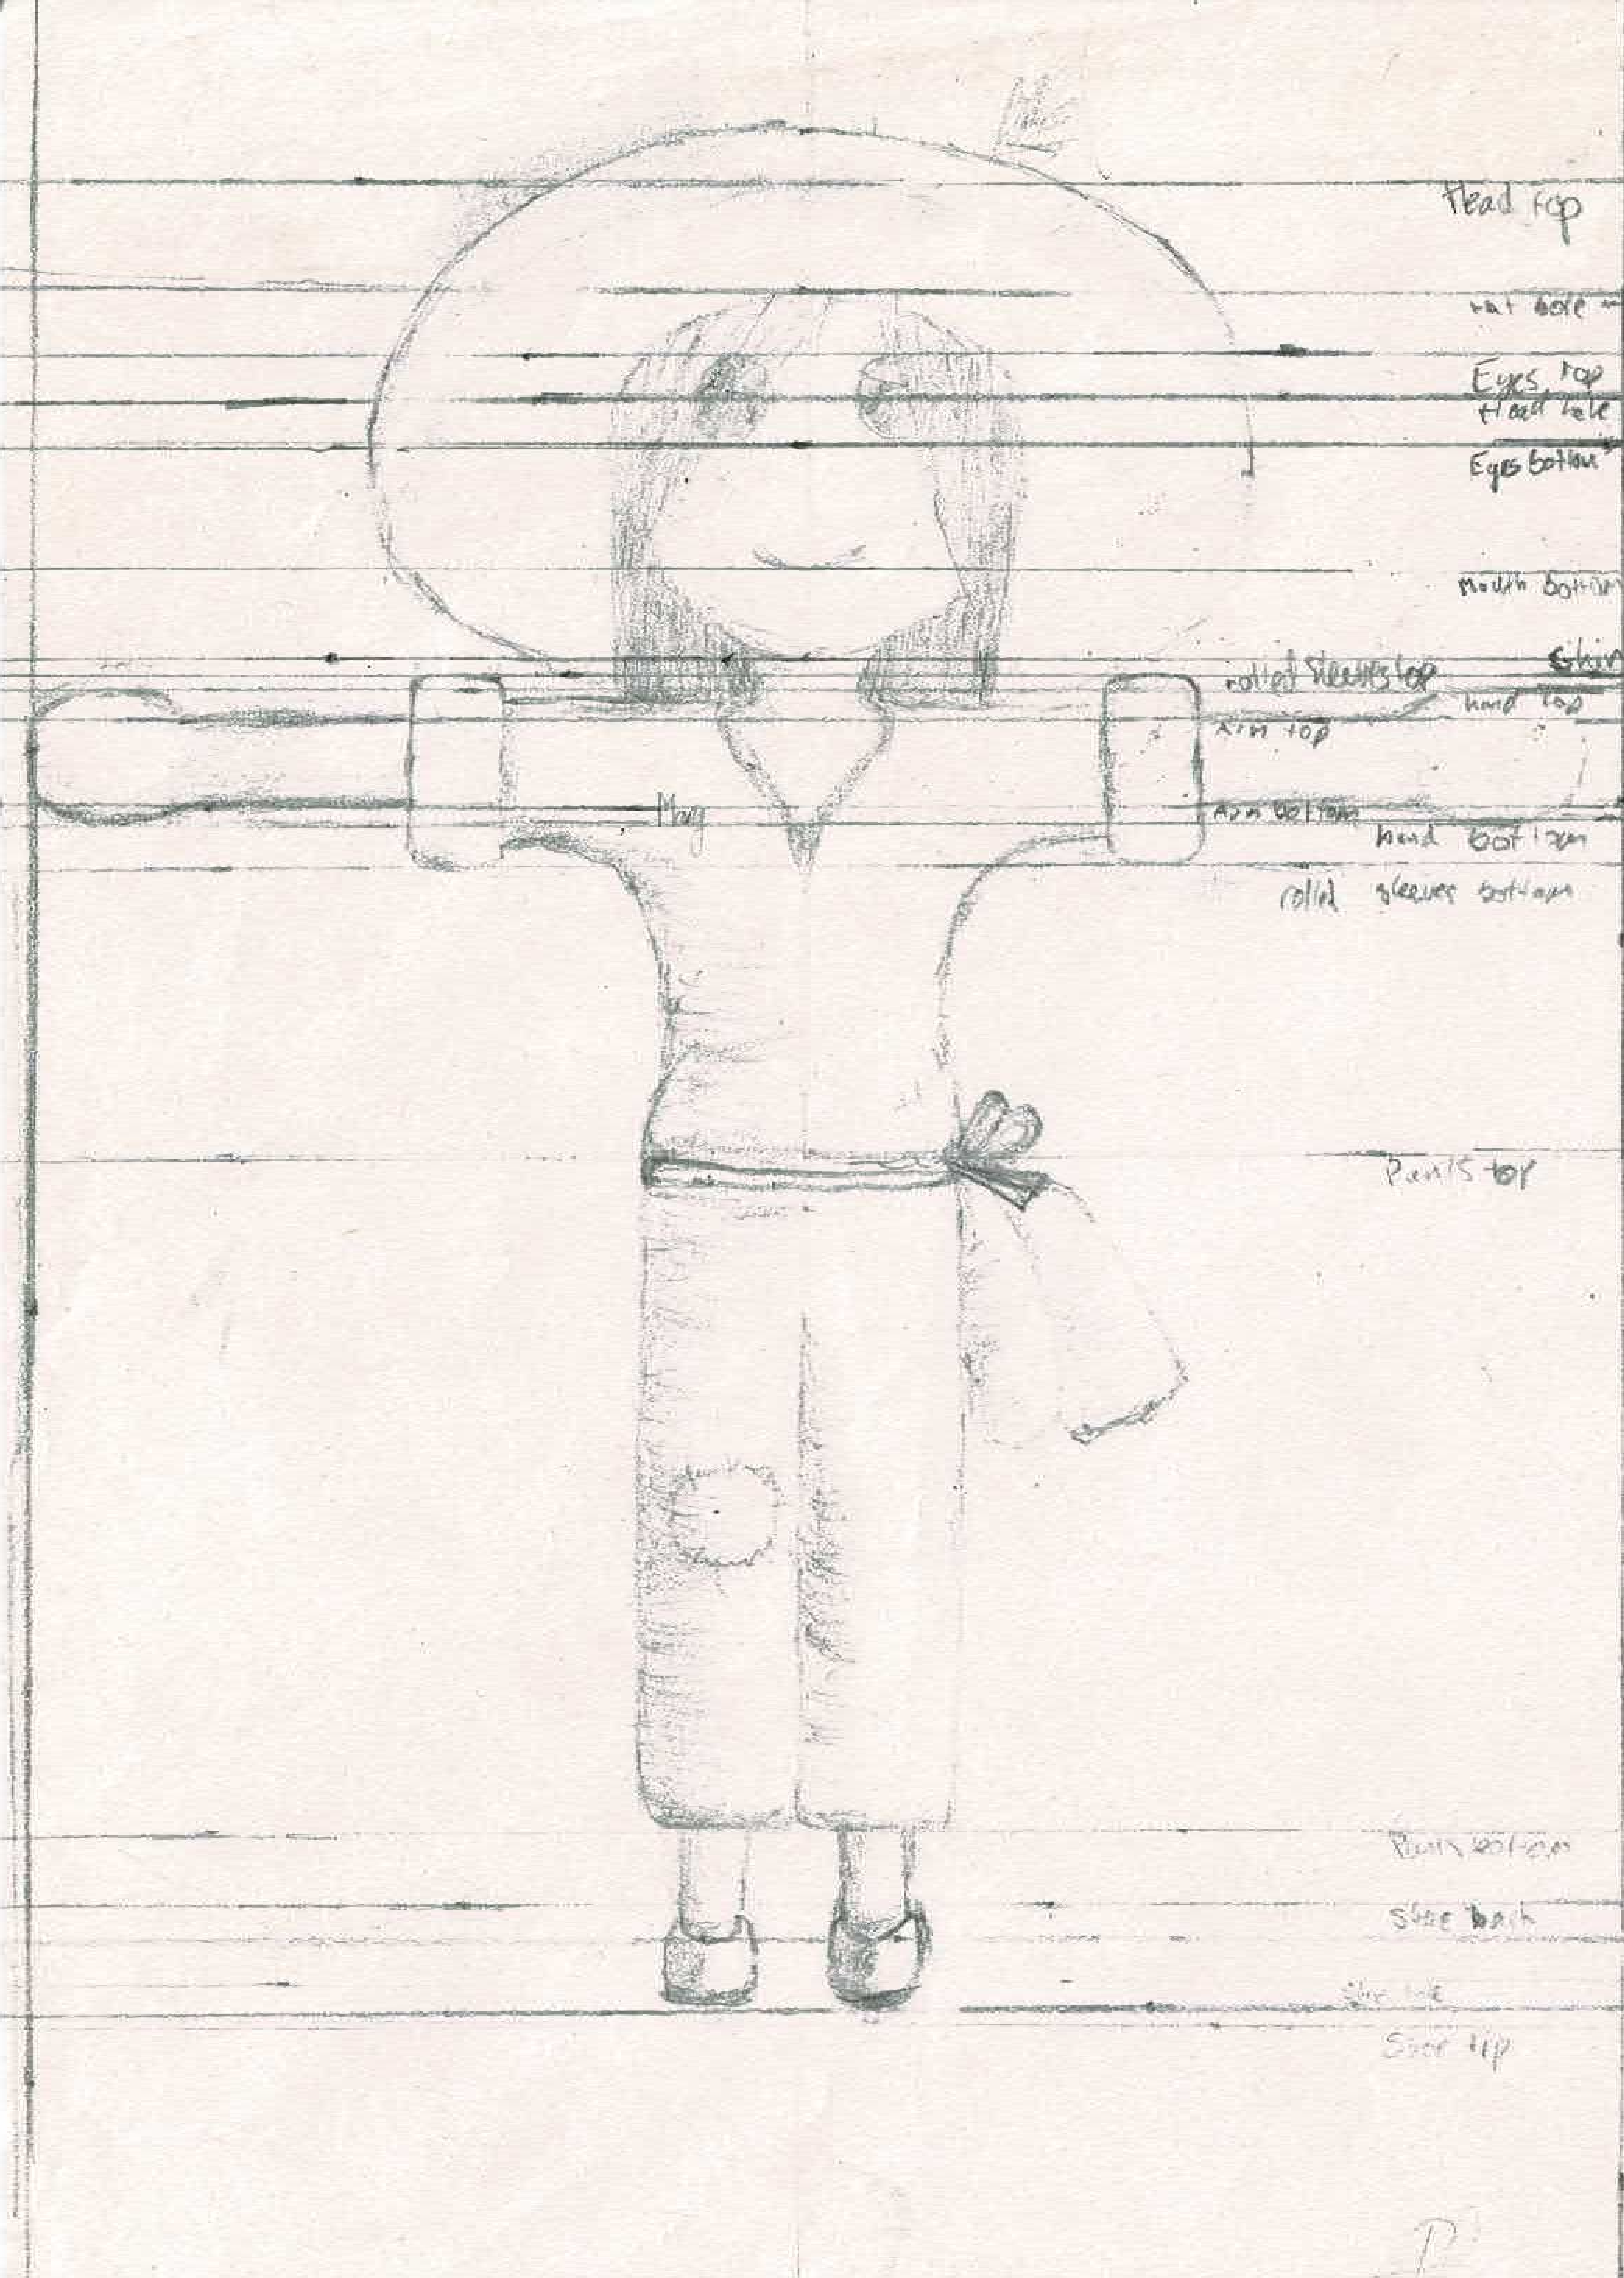 Head top
Hat
Eyes top
Head
Eyes bottom
Mouth bottom
Chin
rolled sleeves top
hand top
Arm top
Mary
Arm bottom
hand bottom
rolled sleeves bottom
top
bottom
Shoe back
Shoe tip